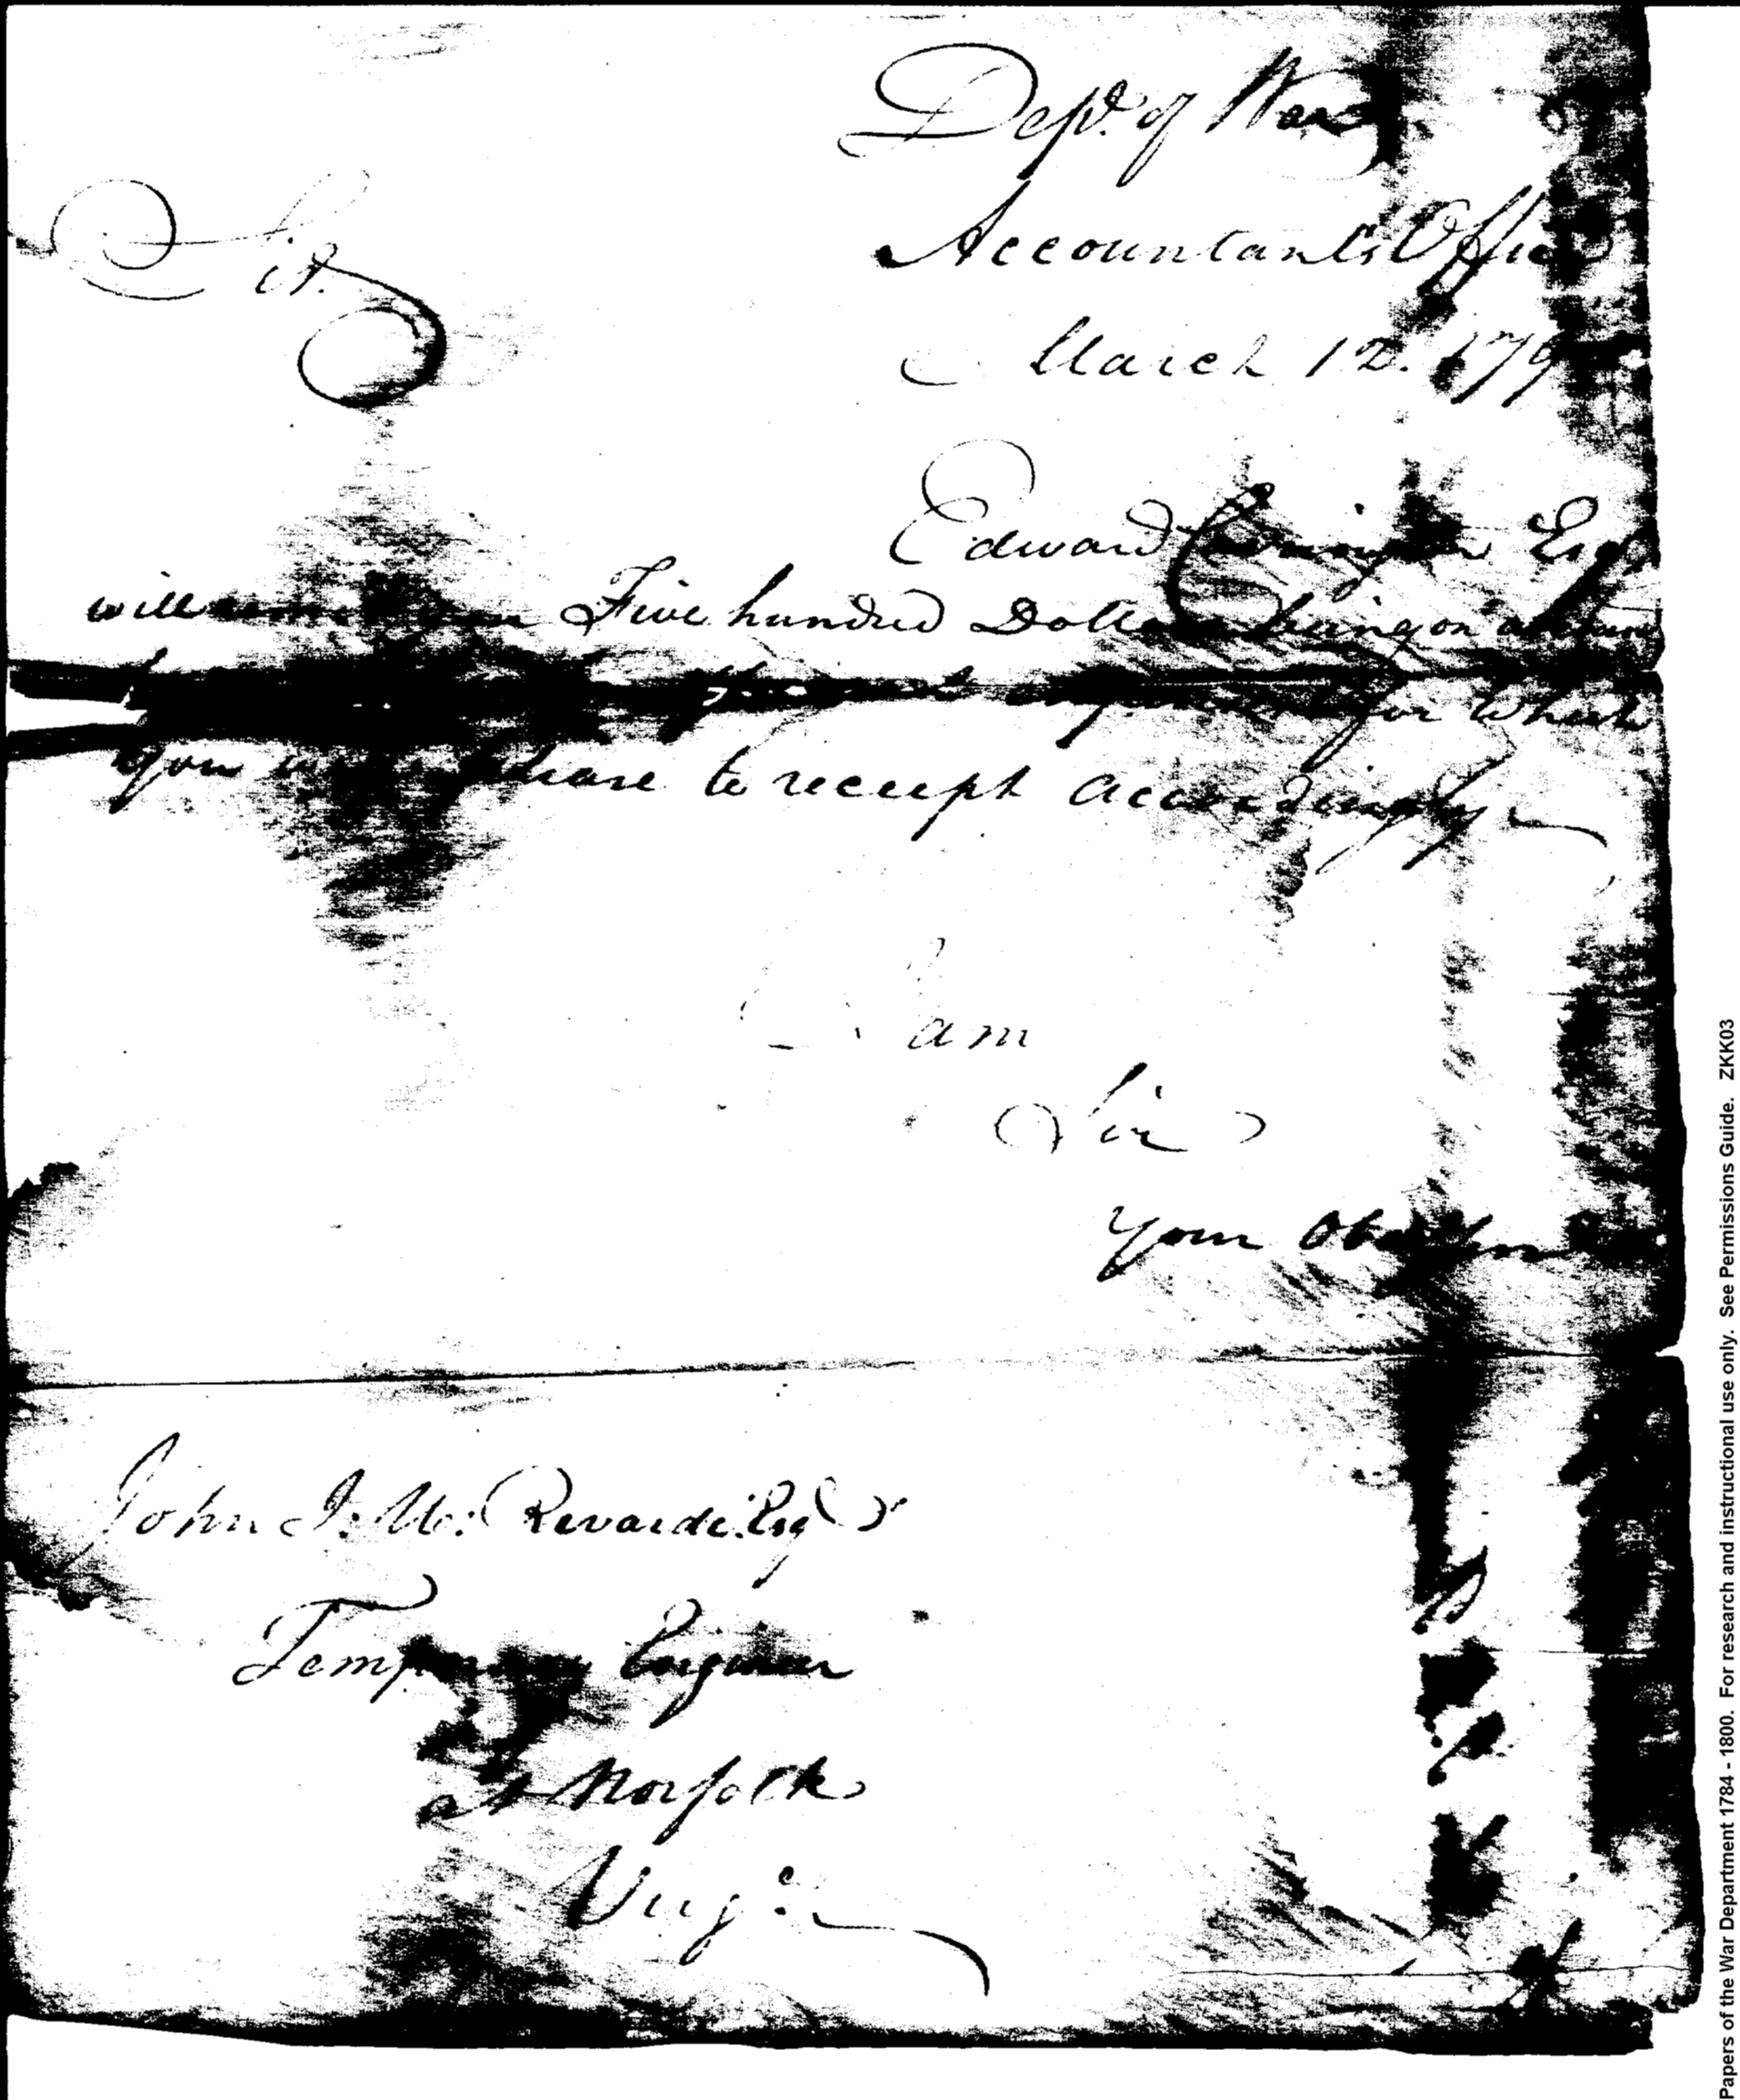 Dep.t of War
Accountant's Office
Sir.
March 12. 179
Edward Carrington Esq
will Five hundred Dollars being on account
for which
you will please to receipt accordingly
I am
Sir
Your Obed
John J: U: Rivardi. Esq
Temporary Engineer
at Norfolk
Virg.a
Papers of the War Department 1784 - 1800. For research and instructional use only. See Permissions Guide. ZKK03